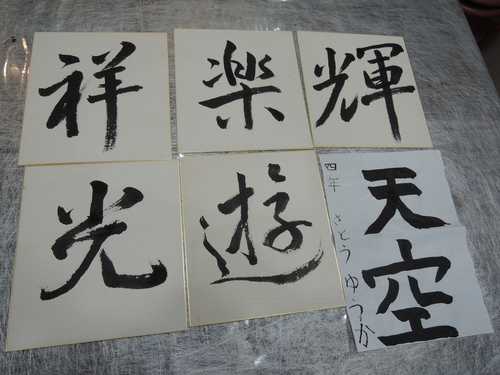 祥
楽
輝
光
遊
天空
四年 さとう ゆうか